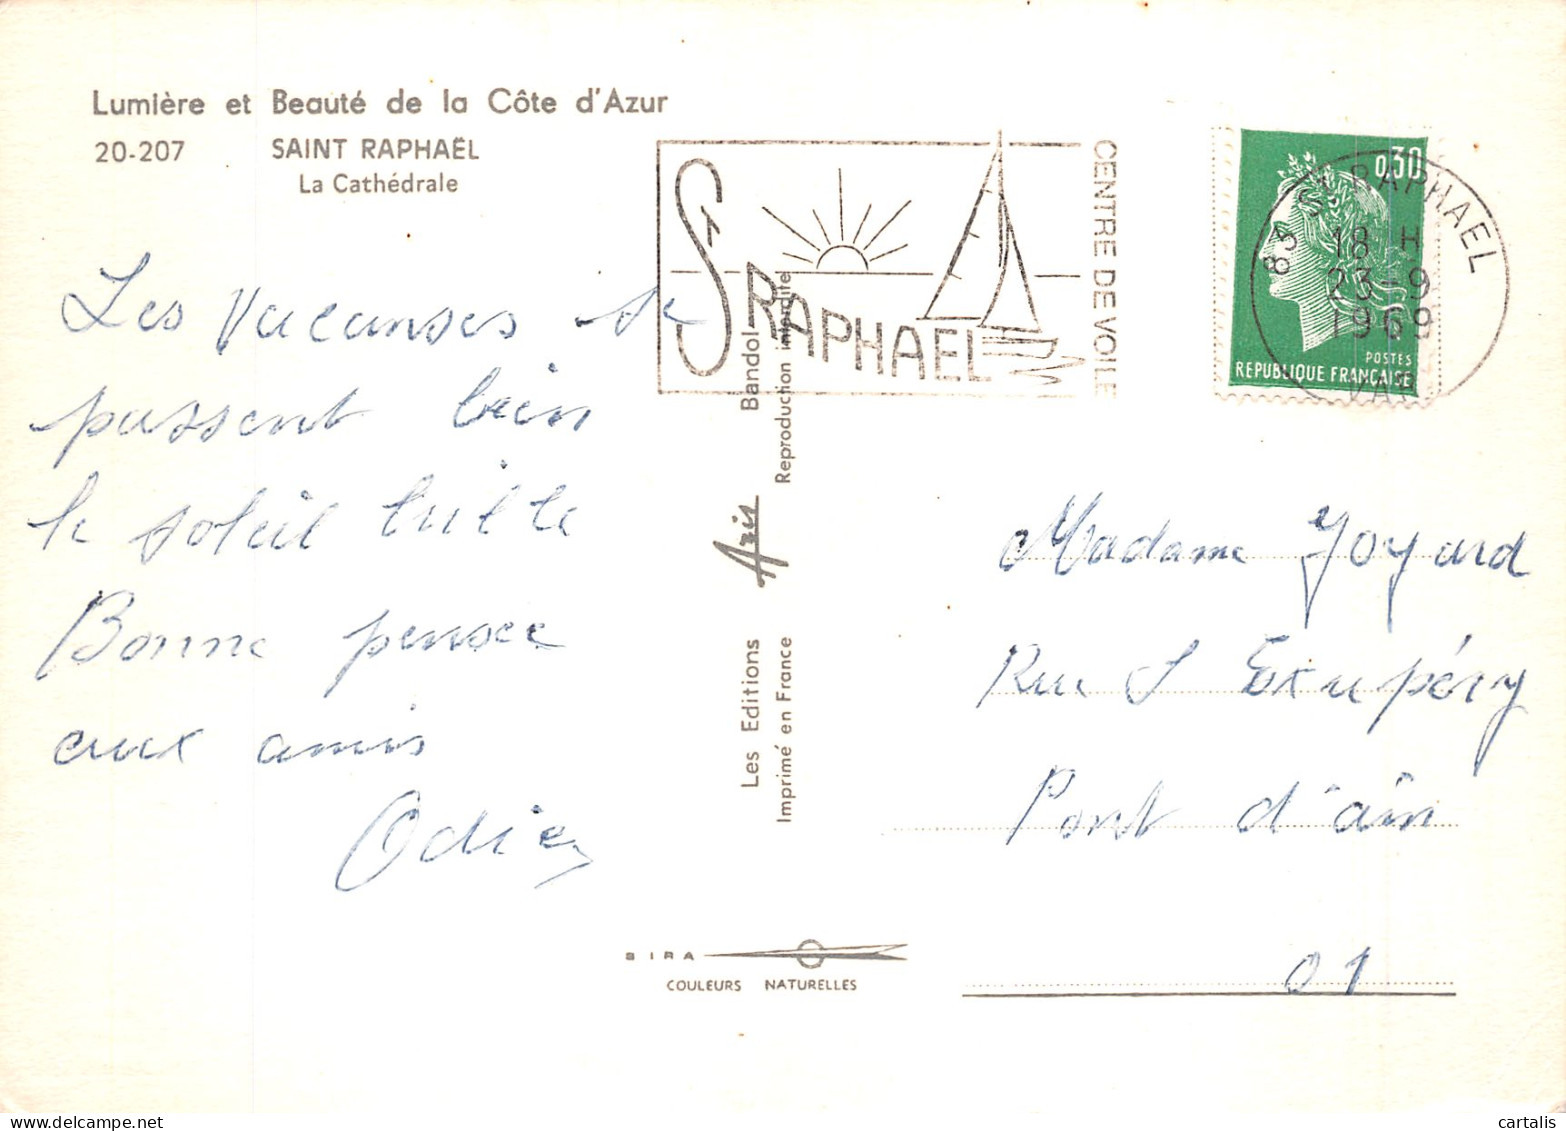 Lumière et Beauté de la Côte d'Azur
20-207 SAINT RAPHAËL
La Cathédrale
ST RAPHAEL
CENTRE DE VOILE
0,30
POSTES
REPUBLIQUE FRANÇAISE
83 ST RAPHAEL
18 H
23-9
1969
VAR
Les vacanses se
passent bien
le soleil brille
Bonne pensée
aux amis
Odie
Les Editions Azis Bandol
Imprimé en France Reproduction interdite
Madame Joyard
Rue S Exupéry
Pont d'ain
01
SIRA
COULEURS NATURELLES
www.delcampe.net
cartalis